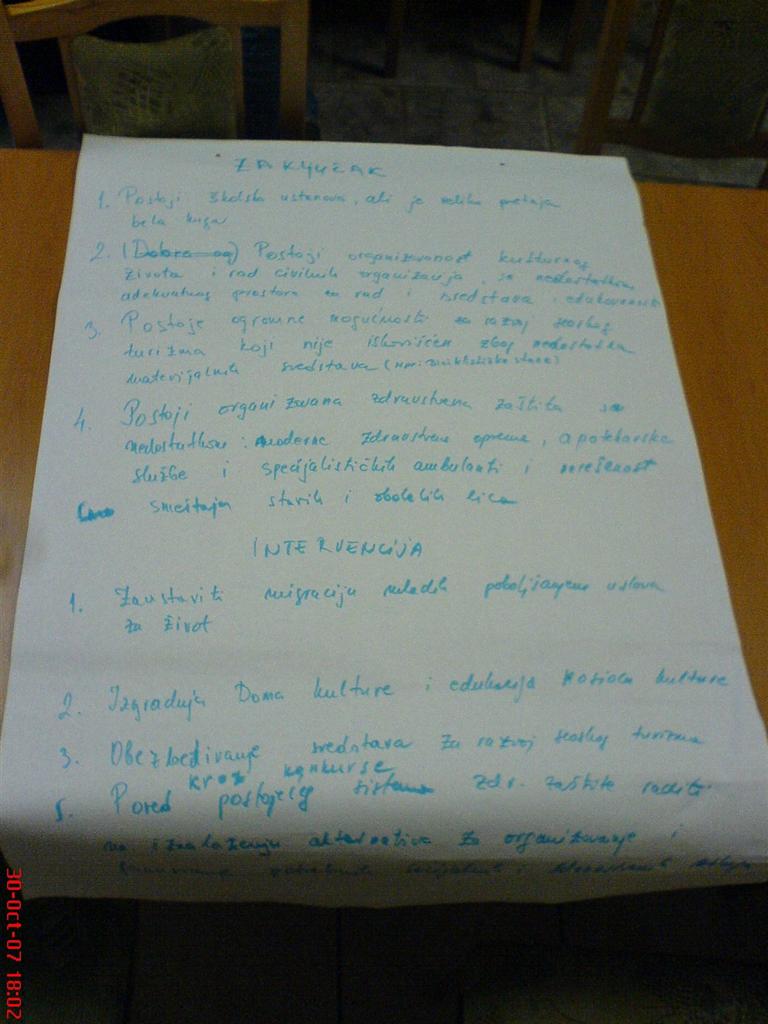 ZAKLJUČAK
1. Postoji školska ustanova, ali je velika pretnja
bela kuga
2. (Dobra) Postoji organizovanost kulturnog
života i rad civilnih organizacija, sa nedostatkom
adekvatnog prostora za rad i sredstava i edukovanosti
3. Postoje ogromne mogućnosti za razvoj seoskog
turizma koji nije iskorišćen zbog nedostatka
materijalnih sredstava (npr. biciklističke staze)
4. Postoji organizovana zdravstvena zaštita sa
nedostatkom: moderne zdravstvene opreme, apotekarske
službe i specijalističkih ambulanti i nerešenost
smeštaja starih i obolelih lica
INTERVENCIJA
1. Zaustaviti migraciju mladih poboljšanjem uslova
za život
2. Izgradnja Doma kulture i edukacija kulture
3. Obezbeđivanje sredstava za razvoj seoskog turizma
kroz konkurse
5. Pored postojećeg sistema zdr. zaštite raditi
na iznalaženju alternativa za organizovanje i
potrebnih socijalnih i zdravstvenih usluga
30-Oct-07 18:02